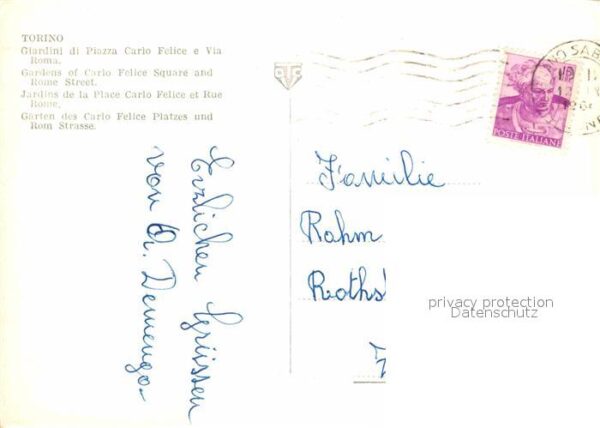 TORINO
Giardini di Piazza Carlo Felice e Via
Roma.
Gardens of Carlo Felice Square and
Rome Street.
Jardins de la Place Carlo Felice et Rue
Rome.
Gärten des Carlo Felice Platzes und
Rom Strasse.
Erzlichen Grüssen
von A. Demengo
Familie
Rahm
Roths
POSTE ITALIANE
privacy protection
Datenschutz